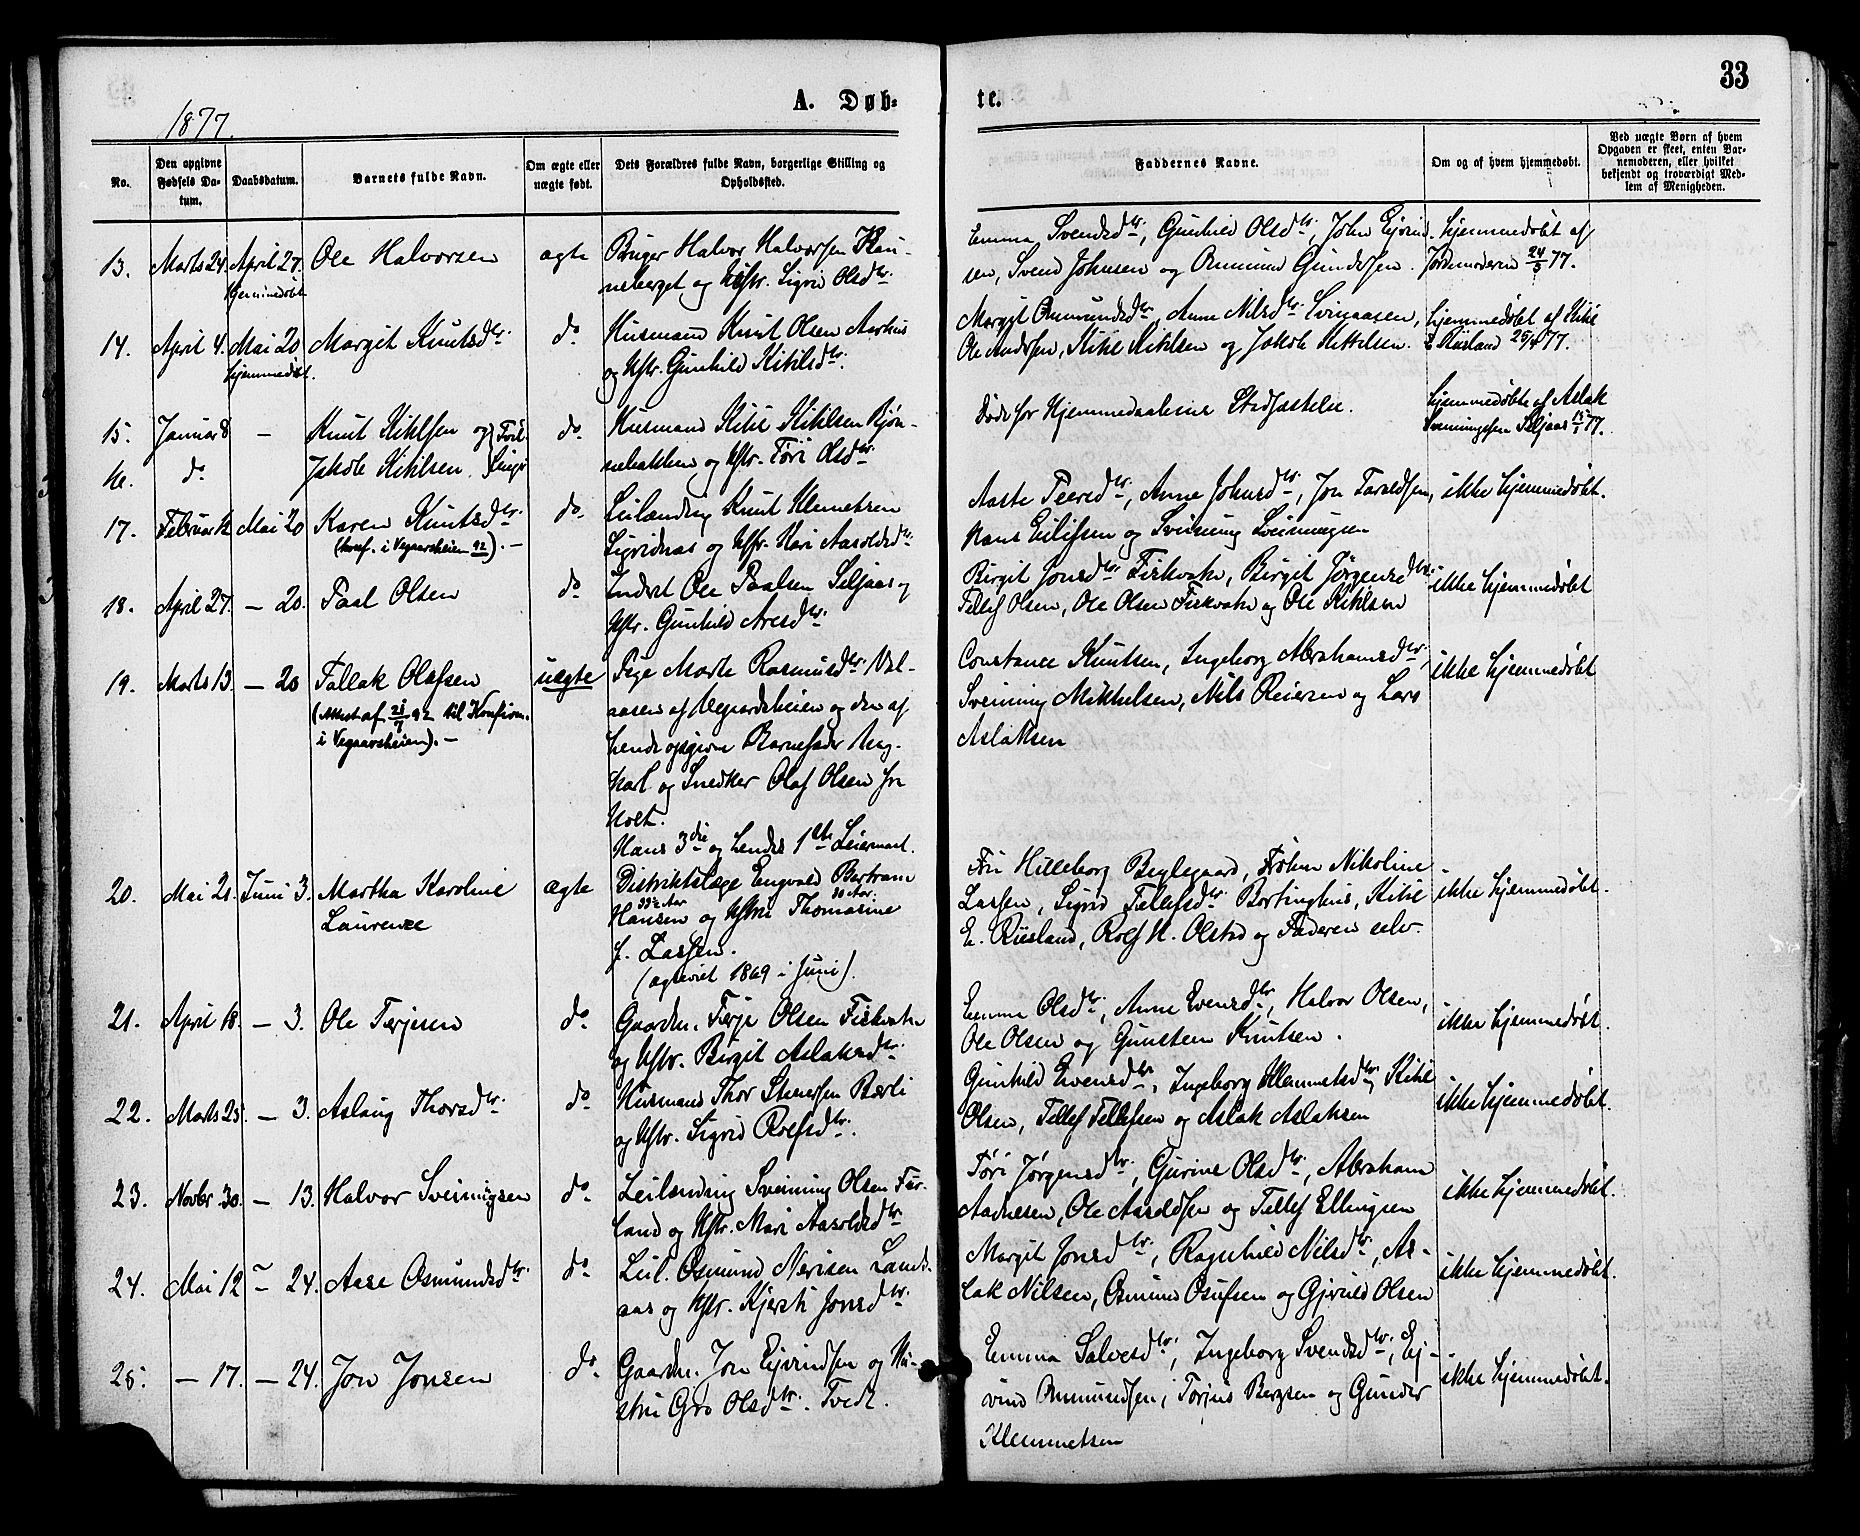 33
1877.
A. Døb-
te.
No.
Den opgivne Fødsels Da-tum.
Daabsdatum.
Barnets fulde Navn.
Om ægte eller uægte født.
Dets Forældres fulde Navn, borgerlige Stilling og Opholdssted.
Faddernes Navne.
Om og af hvem hjemmedøbt.
Ved uægte Børn af hvem Opgaven er skeet, enten Bar-nemoderen, eller hvilket bekjendt og troværdigt Med-lem af Menigheden.
13. Marts 24. April 27. Ole Halvorsen ægte Bruger Halvor Halvorsen
hjemmedøbt
og Hstr. Sigrid Olsdtr.
Emma Svendsdtr., Gunhild Olsdtr., John Ejvind-
sen, Svend Johnsen og Osmund Gundersen.
Hjemmedøbt af
Jordemoderen 24/3 77.
14. April 4. Mai 20 Margit Knutsdtr. do. Husmand Knut Olsen Aarhus
hjemmedøbt.
og Hstr. Gunhild Kittilsdtr.
Margit Osmundsdtr., Anne Nilsdtr. Svinaasen,
Ole Andersen, Kittil Kittilsen og Jakob Kittelsen.
Hjemmedøbt af Kittil
E. Risland 25/4 77.
15. Januar 8 — Knut Kittilsen og Tvil- do. Husmand Kittil Kittilsen Bjøn-
16. do. Jakob Kittilsen. linger nebakken og Hstr. Töri Olsdtr.
Døde før Hjemmedaabens Stadfæstelse.
Hjemmedøbte af Aslak
Sveinungsen Seljaas 15/1 77.
17. Februar 12 Mai 20 Karen Knutsdtr. do. Leilænding Knut Klemetsen
(konf. i Vegaarsheien 92). —
Sigridnæs og Hstr. Kari Aasoldsdtr.
Aaste Peersdtr., Anne Johnsdtr., Jon Taraldsen,
Hans Eilifsen og Sveinung Sveinungsen
ikke hjemmedøbt.
18. April 27. — 20. Paal Olsen do. Inderst Ole Paalsen Seljaas og
Hstr. Gunhild Aresdtr.
Birgit Jonsdtr. Fiskvatn, Birgit Jørgensdtr.
Tellef Olsen, Ole Olsen Fiskvatn og Ole Kittilsen
ikke hjemmedøbt
19. Marts 13. — 20 Tallak Olafsen uægte Pige Marte Rasmusdtr. Val-
(Attest af 21/7 92 til Konfirm.
i Vegaarsheien). —
aasen af Vegardsheien og den af
hende opgivne Barnefader Ung-
karl og Snedker Olaf Olsen fra
Holt.
Hans 3die og hendes 1ste Leiermaal.
Constance Knutsen, Ingeborg Abrahamsdtr.
Sveinung Mikkelsen, Nils Reiersen og Lars
Aslaksen
ikke hjemmedøbt
20. Mai 21. Juni 3. Martha Karoline ægte Distriktslæge Engvald Bertram
Laurenze
33½ Aar 30 Aar.
Hansen og Hstru Thomasine
J. Lassen.
(ægteviet 1869 i Juni).
Fru Hilleborg Beylegaard, Frøken Nikoline
Lassen, Sigrid Tellefsdtr. Bortinghus, Kittil
E. Risland, Rolf H. Olstad og Faderen selv.
ikke hjemmedøbt.
21. April 18. — 3. Ole Terjesen do. Gaardm. Terje Olsen Fiskvatn
og Hstr. Birgit Aslaksdtr.
Emma Olsdtr., Anne Evensdtr., Halvor Olsen,
Ole Olsen og Gunstein Knutsen.
ikke hjemmedøbt.
22. Marts 25. — 3. Aslaug Thorsdtr. do. Husmand Thor Stenersen Bærli
og Hstr. Sigrid Rolfsdtr.
Gunhild Evensdtr., Ingeborg Klemmetsdtr., Kittil
Olsen, Tellef Tellefsen og Aslak Aslaksen
ikke hjemmedøbt.
23. Novbr 30. — 13. Halvor Sveinugsen do. Leilænding Sveinung Olsen Fos-
land og Hstr. Mari Aasoldsdtr.
Töri Jørgensdtr., Gurine Olsdtr., Abraham
Aadnesen, Ole Aasoldsen og Tellef Ellingsen
ikke hjemmedøbt.
24. Mai 12 — 24. Aase Osmundsdtr. do. Leil. Osmund Nerisen Lands-
aas og Hstr. Kjersti Jonsdtr.
Margit Jonsdtr., Ragnhild Nilsdtr., As-
lak Nilsen, Osmund Osufsen og Gjeruld Olsen
ikke hjemmedøbt.
25. — 17. — 24. Jon Jonsen do. Gaardm. Jon Ejvindsen og Hu-
stru Gro Olsdtr. Tvedt.
Emma Salvesdtr., Ingeborg Svendsdtr., Ej-
vind Osmundsen, Torjus Bergsen og Gunder
Klemmetsen
ikke hjemmedøbt.